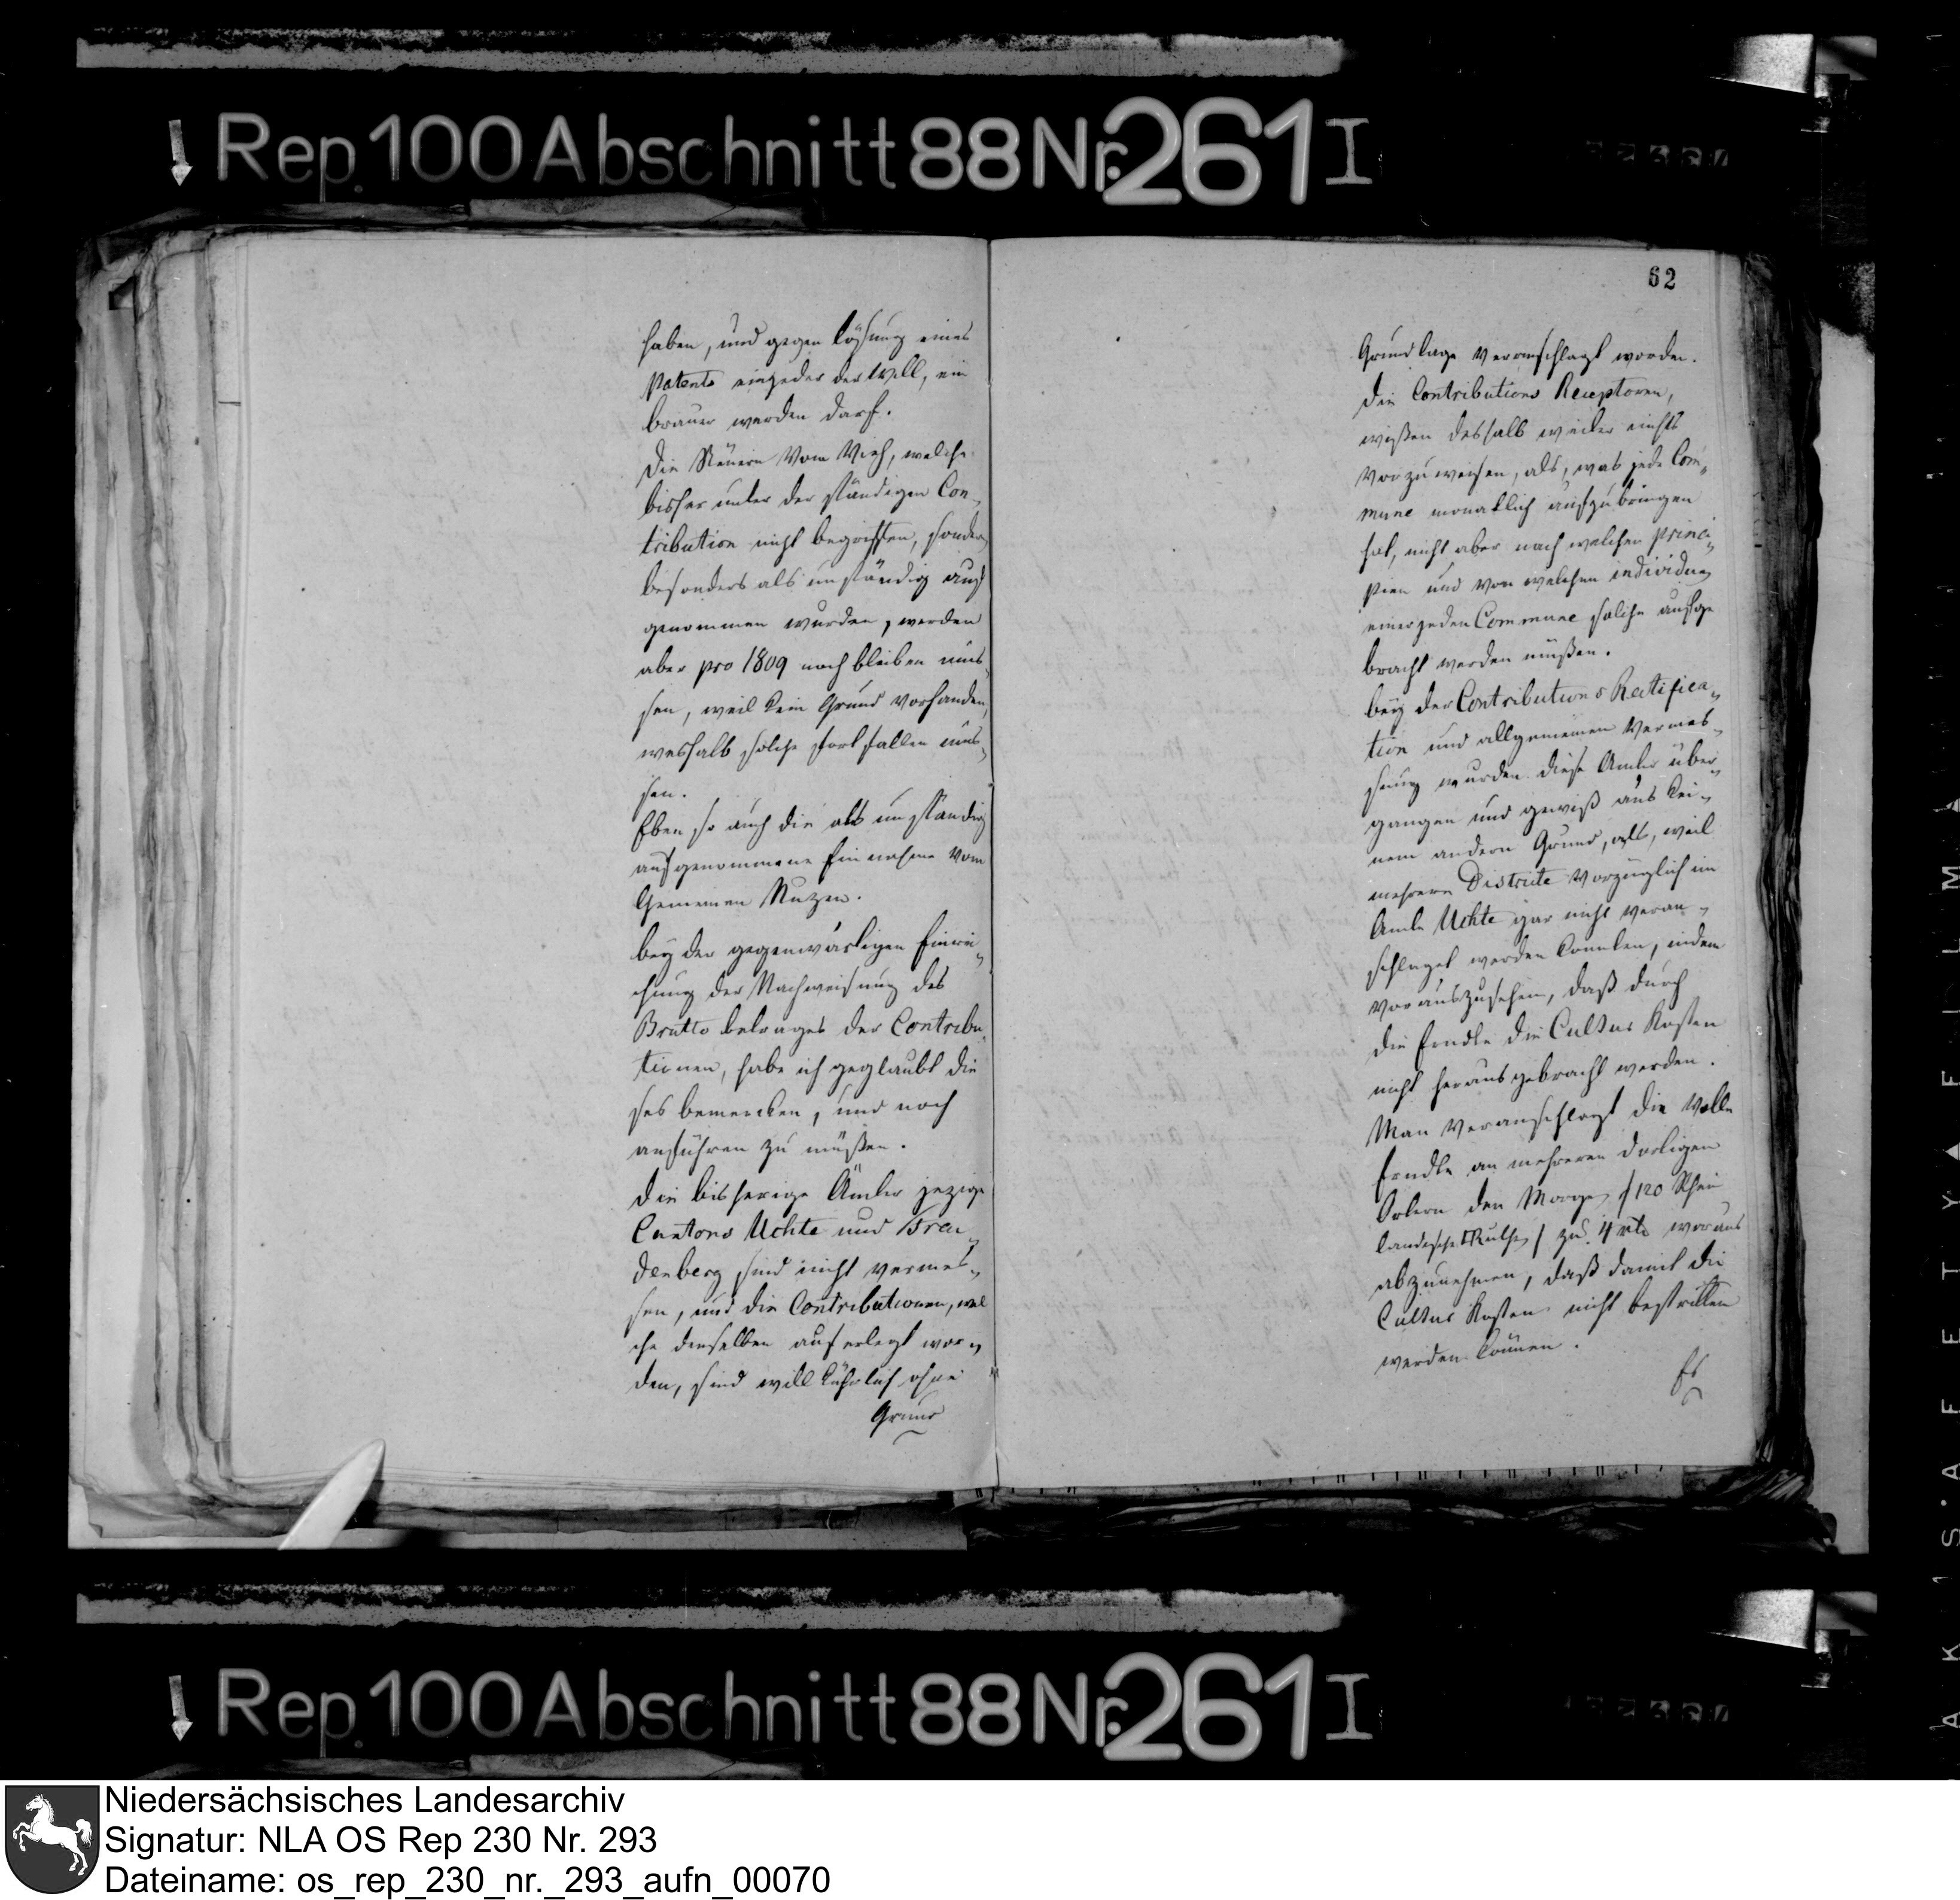 Rep. 100 Abschnitt 88 Nr. 261 I
haben, und gegen Lösung eines
Patents ein jeder der will, ein
brauer werden darf.
Die Steuern vom Vieh, welche
bisher unter der ständigen Con-
tribution nicht begriffen, sondern
besonders als unständig auf
genommen wurden, werden
aber pro 1809 noch bleiben müs-
sen, weil kein Grund vorhanden,
weshalb solche fortfallen müs-
sen.
Eben so auch die als unständig
aufgenommene Einnahme vom
Gemeinen Nuzen.
bey der gegenwärtigen Einrei-
chung der Nachweisung des
Brutto betrages der Contribu-
tionen, habe ich geglaubt die
ses bemercken, und noch
anführen zu müßen.
Die bisherige Ämter jezige
Cantons Uchte und Freu-
denberg sind nicht vermes-
sen, und die Contributionen, wel
che denselben auferlegt wor-
den, sind willkührlich ohne
Grund
62
Grundlage veranschlagt worden.
Die Contributions Receptoren,
wißen deshalb weiter nichts
vorzuweisen, als, was jede Com-
mune monatlich aufzubringen
hat, nicht aber nach welchen princi-
pien und von welchen individuen
einer jeden Commune solche aufge
bracht werden müßen.
bey der Contributions Rectifica-
tion und allgemeinen Vermes-
sung wurden diese Ämter über-
gangen und gewiß aus kei-
nem andern Grund, als, weil
mehrere Districte vorzüglich im
Amte Uchte gar nicht veran-
schlaget werden konnten, indem
vorauszusehen, daß durch
die Erndte die Cultur Kosten
nicht heraus gebracht werden.
Man veranschlagt die volle
Erndte an mehreren dortigen
Orten den Morgen /120 Rhein
landische □Ruthen/ zu 4 rtl woraus
abzunehmen, daß damit die
Cultur Kosten nicht bestritten
werden können.
Es
Rep. 100 Abschnitt 88 Nr. 261 I
Niedersächsisches Landesarchiv
Signatur: NLA OS Rep 230 Nr. 293
Dateiname: os_rep_230_nr._293_aufn_00070